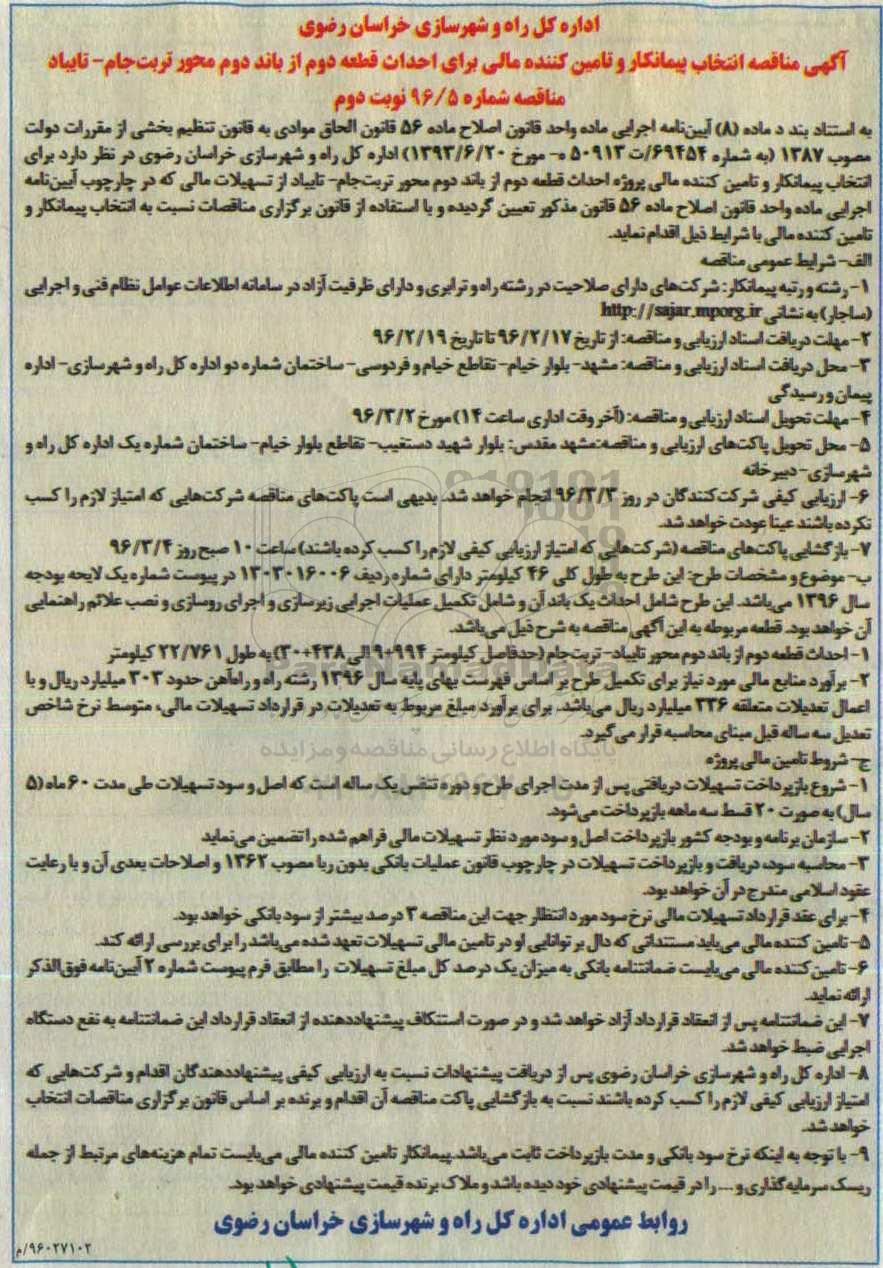 اداره کل راه و شهرسازی خراسان رضوی
آگهی مناقصه انتخاب پیمانکار و تامین کننده مالی برای احداث قطعه دوم از باند دوم محور تربت‌جام- تایباد
مناقصه شماره ۹۶/۵ نوبت دوم
به استناد بند د ماده (۸) آیین‌نامه اجرایی ماده واحد قانون اصلاح ماده ۵۶ قانون الحاق موادی به قانون تنظیم بخشی از مقررات دولت
مصوب ۱۳۸۷ (به شماره ۶۹۴۵۴/ت ۵۰۹۱۳ ه- مورخ ۱۳۹۳/۶/۲۰) اداره کل راه و شهرسازی خراسان رضوی در نظر دارد برای
انتخاب پیمانکار و تامین کننده مالی پروژه احداث قطعه دوم از باند دوم محور تربت‌جام- تایباد از تسهیلات مالی که در چارچوب آیین‌نامه
اجرایی ماده واحد قانون اصلاح ماده ۵۶ قانون مذکور تعیین گردیده و با استفاده از قانون برگزاری مناقصات نسبت به انتخاب پیمانکار و
تامین کننده مالی با شرایط ذیل اقدام نماید.
الف- شرایط عمومی مناقصه
۱- رشته و رتبه پیمانکار: شرکت‌های دارای صلاحیت در رشته راه و ترابری و دارای ظرفیت آزاد در سامانه اطلاعات عوامل نظام فنی و اجرایی
(ساجار) به نشانی http://sajar.mporg.ir
۲- مهلت دریافت اسناد ارزیابی و مناقصه: از تاریخ ۹۶/۲/۱۷ تا تاریخ ۹۶/۲/۱۹
۳- محل دریافت اسناد ارزیابی و مناقصه: مشهد- بلوار خیام- تقاطع خیام و فردوسی- ساختمان شماره دو اداره کل راه و شهرسازی- اداره
پیمان و رسیدگی
۴- مهلت تحویل اسناد ارزیابی و مناقصه: (آخر وقت اداری ساعت ۱۴) مورخ ۹۶/۳/۲
۵- محل تحویل پاکت‌های ارزیابی و مناقصه:مشهد مقدس: بلوار شهید دستغیب- تقاطع بلوار خیام- ساختمان شماره یک اداره کل راه و
شهرسازی- دبیرخانه
۶- ارزیابی کیفی شرکت‌کنندگان در روز ۹۶/۳/۳ انجام خواهد شد. بدیهی است پاکت‌های مناقصه شرکت‌هایی که امتیاز لازم را کسب
نکرده باشند عینا عودت خواهد شد.
۷- بازگشایی پاکت‌های مناقصه (شرکت‌هایی که امتیاز ارزیابی کیفی لازم را کسب کرده باشند) ساعت ۱۰ صبح روز ۹۶/۳/۴
ب- موضوع و مشخصات طرح: این طرح به طول کلی ۴۶ کیلومتر دارای شماره ردیف ۱۳۰۳۰۱۶۰۰۶ در پیوست شماره یک لایحه بودجه
سال ۱۳۹۶ می‌باشد. این طرح شامل احداث یک باند آن و شامل تکمیل عملیات اجرایی زیرسازی و اجرای روسازی و نصب علائم راهنمایی
آن خواهد بود. قطعه مربوطه به این آگهی مناقصه به شرح ذیل می‌باشد.
۱- احداث قطعه دوم از باند دوم محور تایباد- تربت‌جام (حدفاصل کیلومتر ۹۹۴+۹ الی ۴۳۸+۳۰) به طول ۲۲/۷۶۱ کیلومتر
۲- برآورد منابع مالی مورد نیاز برای تکمیل طرح بر اساس فهرست بهای پایه سال ۱۳۹۶ رشته راه و راه‌آهن حدود ۳۰۳ میلیارد ریال و با
اعمال تعدیلات متعلقه ۳۳۶ میلیارد ریال می‌باشد. برای برآورد مبلغ مربوط به تعدیلات در قرارداد تسهیلات مالی، متوسط نرخ شاخص
تعدیل سه ساله قبل مبنای محاسبه قرار می‌گیرد.
ج- شروط تامین مالی پروژه
۱- شروع بازپرداخت تسهیلات دریافتی پس از مدت اجرای طرح و دوره تنفس یک ساله است که اصل و سود تسهیلات طی مدت ۶۰ ماه (۵
سال) به صورت ۲۰ قسط سه ماهه بازپرداخت می‌شود.
۲- سازمان برنامه و بودجه کشور بازپرداخت اصل و سود مورد نظر تسهیلات مالی فراهم شده را تضمین می‌نماید
۳- محاسبه سود، دریافت و بازپرداخت تسهیلات در چارچوب قانون عملیات بانکی بدون ربا مصوب ۱۳۶۲ و اصلاحات بعدی آن و با رعایت
عقود اسلامی مندرج در آن خواهد بود.
۴- برای عقد قرارداد تسهیلات مالی نرخ سود مورد انتظار جهت این مناقصه ۳ درصد بیشتر از سود بانکی خواهد بود.
۵- تامین کننده مالی می‌باید مستنداتی که دال بر توانایی او در تامین مالی تسهیلات تعهد شده می‌باشد را برای بررسی ارائه کند.
۶- تامین کننده مالی می‌بایست ضمانتنامه بانکی به میزان یک درصد کل مبلغ تسهیلات را مطابق فرم پیوست شماره ۲ آیین‌نامه فوق‌الذکر
ارائه نماید.
۷- این ضمانتنامه پس از انعقاد قرارداد آزاد خواهد شد و در صورت استنکاف پیشنهاددهنده از انعقاد قرارداد این ضمانتنامه به نفع دستگاه
اجرایی ضبط خواهد شد.
۸- اداره کل راه و شهرسازی خراسان رضوی پس از دریافت پیشنهادات نسبت به ارزیابی کیفی پیشنهاددهندگان اقدام و شرکت‌هایی که
امتیاز ارزیابی کیفی لازم را کسب کرده باشند نسبت به بازگشایی پاکت مناقصه آن اقدام و برنده بر اساس قانون برگزاری مناقصات انتخاب
خواهد شد.
۹- با توجه به اینکه نرخ سود بانکی و مدت بازپرداخت ثابت می‌باشد.پیمانکار تامین کننده مالی می‌بایست تمام هزینه‌های مرتبط از جمله
ریسک سرمایه‌گذاری و ... را در قیمت پیشنهادی خود دیده باشد و ملاک برنده قیمت پیشنهادی خواهد بود.
روابط عمومی اداره کل راه و شهرسازی خراسان رضوی
۹۶۰۲۷۱۰۲/م
پایگاه اطلاع رسانی مناقصه و مزایده